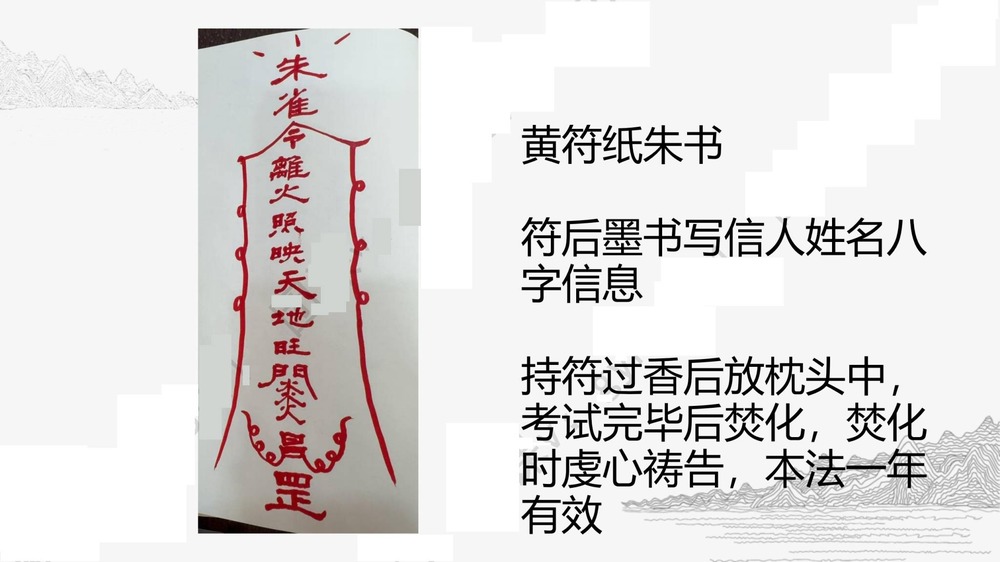 朱
雀
令
離
火
照
映
天
地
旺
門
昌
罡
黄符纸朱书
符后墨书写信人姓名八
字信息
持符过香后放枕头中，
考试完毕后焚化，焚化
时虔心祷告，本法一年
有效